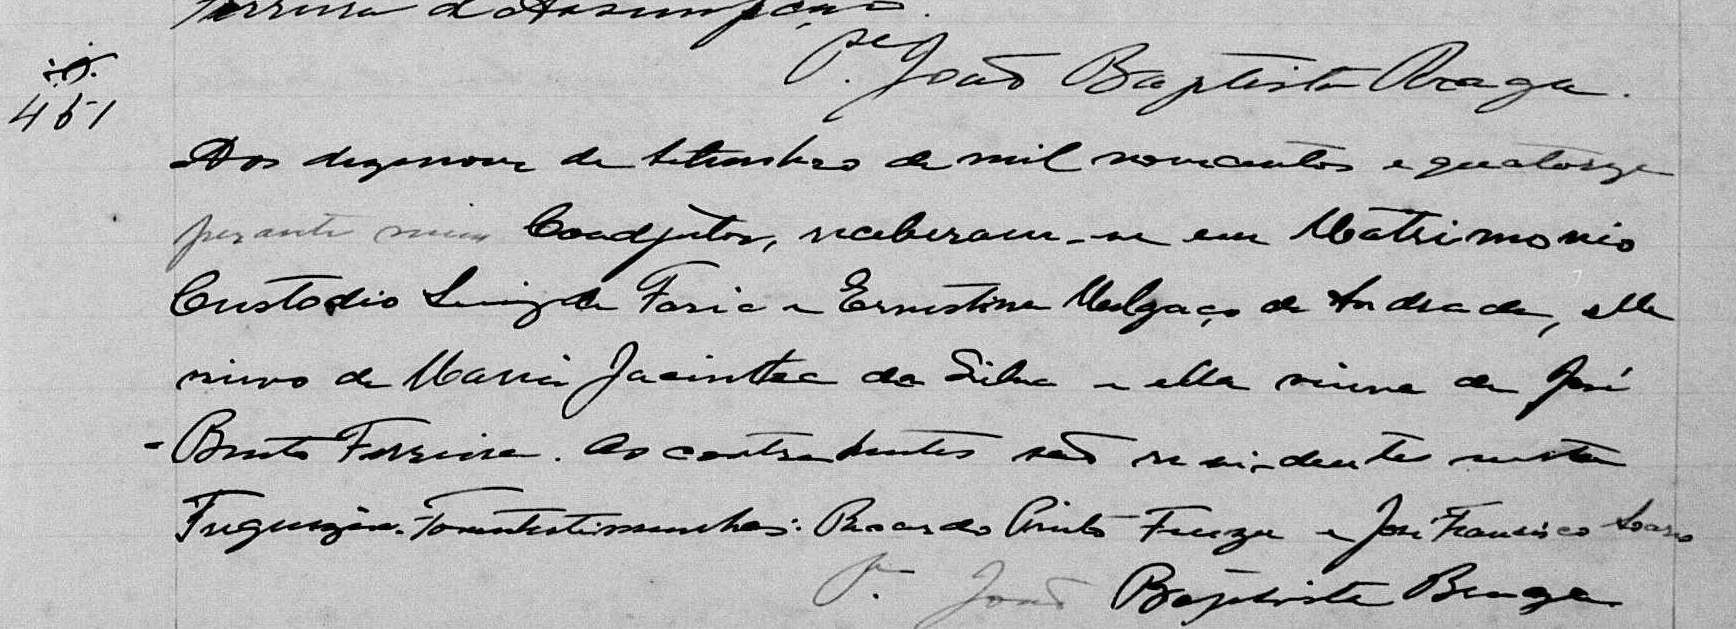 Ferreira d'Assumpção.
Pe. João Baptista Braga.
451
Aos dezenove de Setembro de mil novecentos e quatorze
perante mim Coadjutor, receberam-se em Matrimonio
Custodio Luiz de Faria e Ernestina Melgaço de Andrade, elle
viuvo de Maria Jacintha da Silva e ella viuva de José
Bento Ferreira. Os contrahentes são residentes nesta
Freguezia. Foram testimunhas: Ricardo Pinto Fiuza e José Francisco Soares
Pe. João Baptista Braga